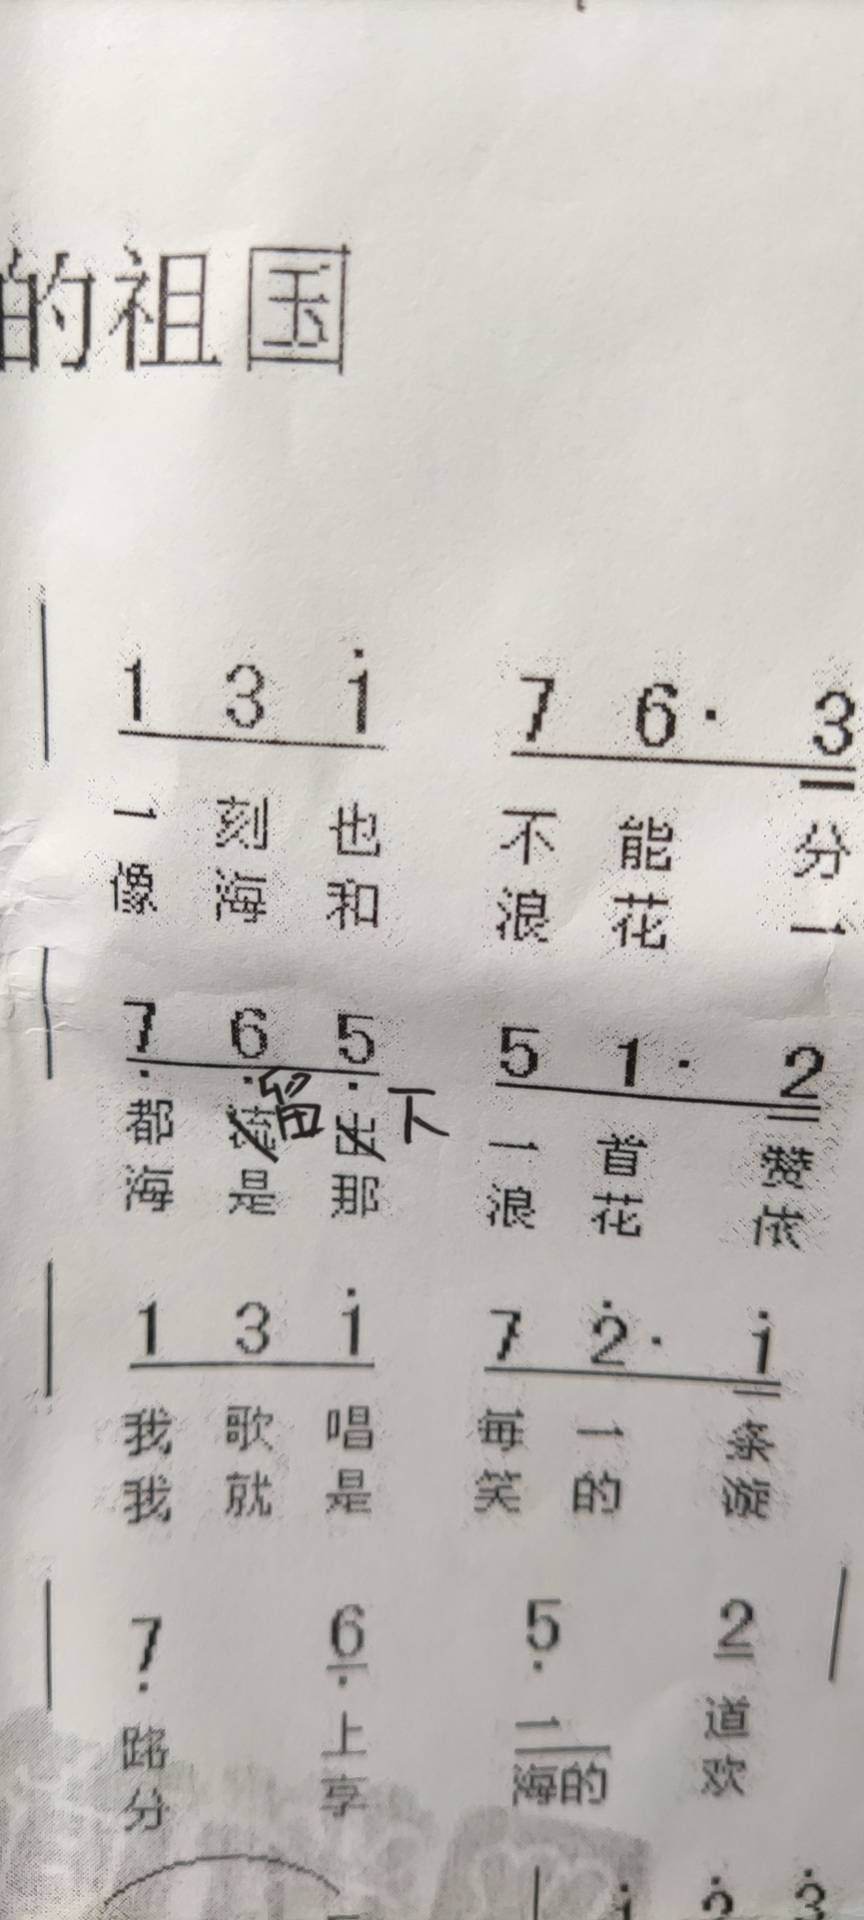 的祖国
1 3 1 7 6· 3
一 刻 也 不 能 分
像 海 和 浪 花 一
7 6 5 5 1· 2
都 留 下 一 首 赞
海 是 那 浪 花 依
1 3 1 7 2· 1
我 歌 唱 每 一 条
我 就 是 笑 的 漩
7 6 5 2
路 上 一 道
分 享 海的 欢
1 2 3